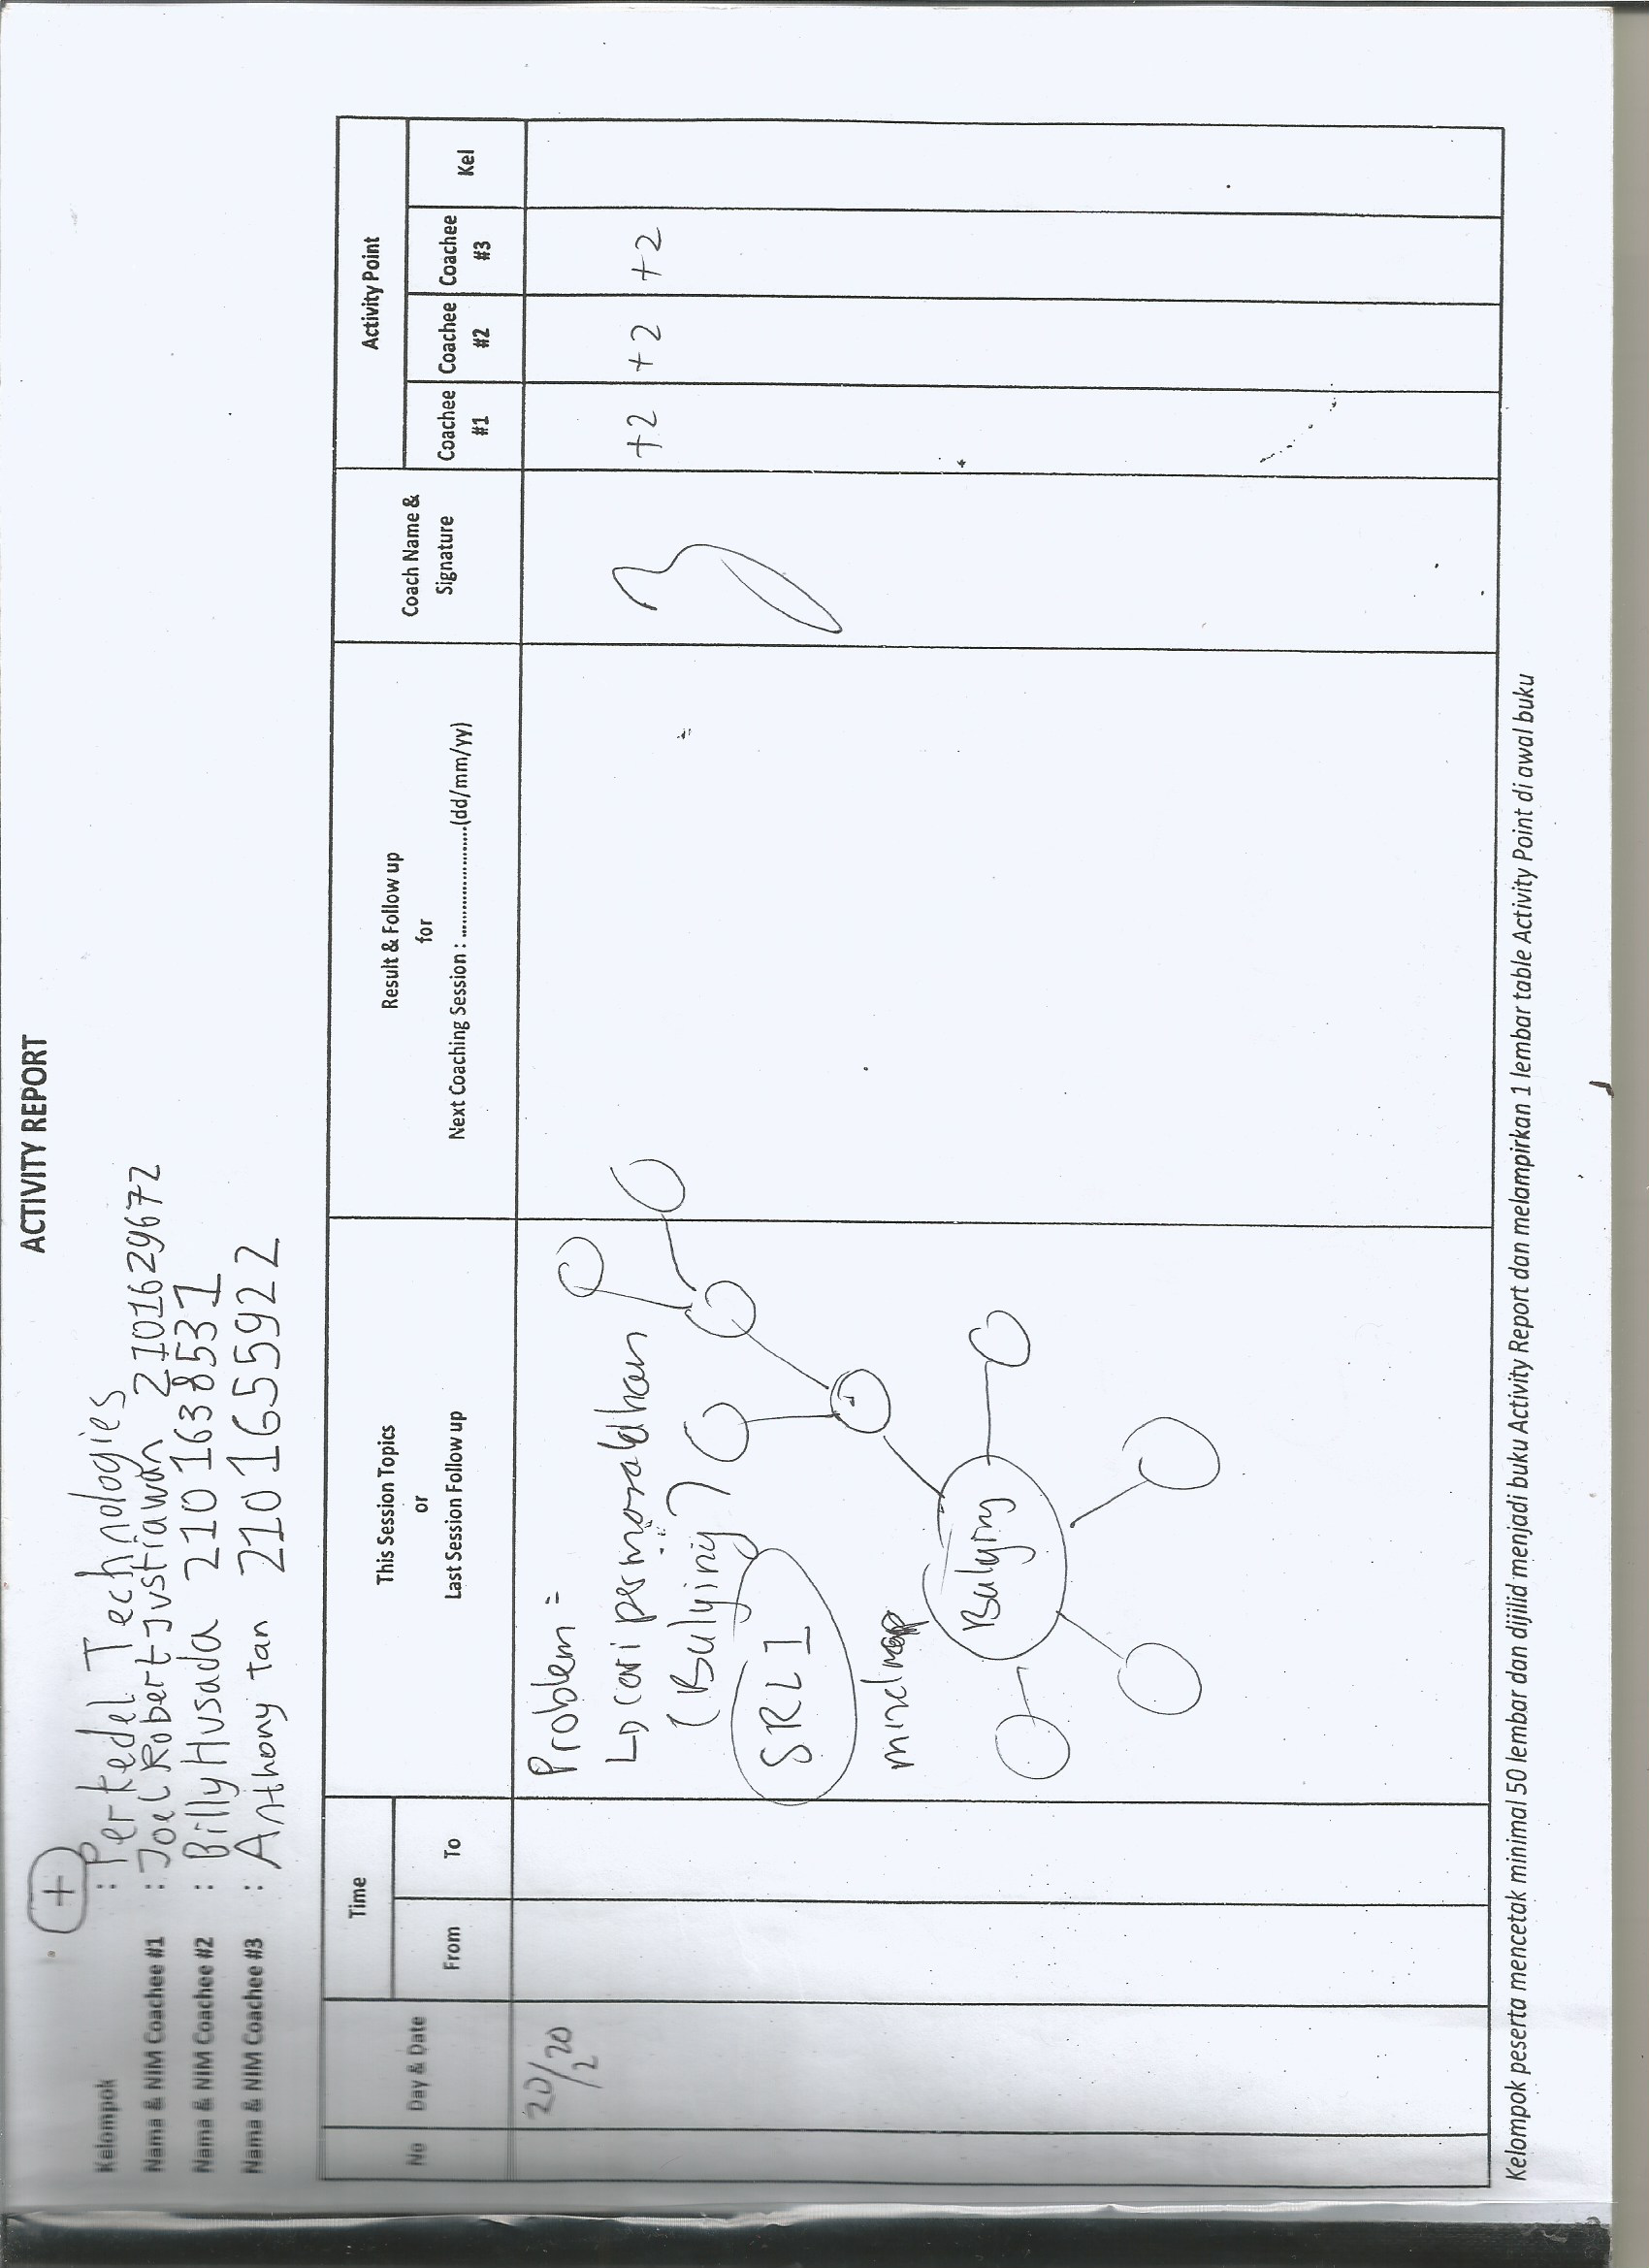 ACTIVITY REPORT
+
Kelompok : Perkedel Technologies
Nama & NIM Coachee #1 : Joel Robert Justiawan 2101629672
Nama & NIM Coachee #2 : Billy Husada 2101638531
Nama & NIM Coachee #3 : Anthony Tan 2101655922
No
Day & Date
Time
From
To
This Session Topics
or
Last Session Follow up
Result & Follow up
for
Next Coaching Session : ........................(dd/mm/yy)
Coach Name &
Signature
Activity Point
Coachee
#1
Coachee
#2
Coachee
#3
Kel
20/20
2
Problem =
cari permasalahan
(Bulying)
SRL 1
mindmap
Bulying
+2 +2 +2
Kelompok peserta mencetak minimal 50 lembar dan dijilid menjadi buku Activity Report dan melampirkan 1 lembar table Activity Point di awal buku